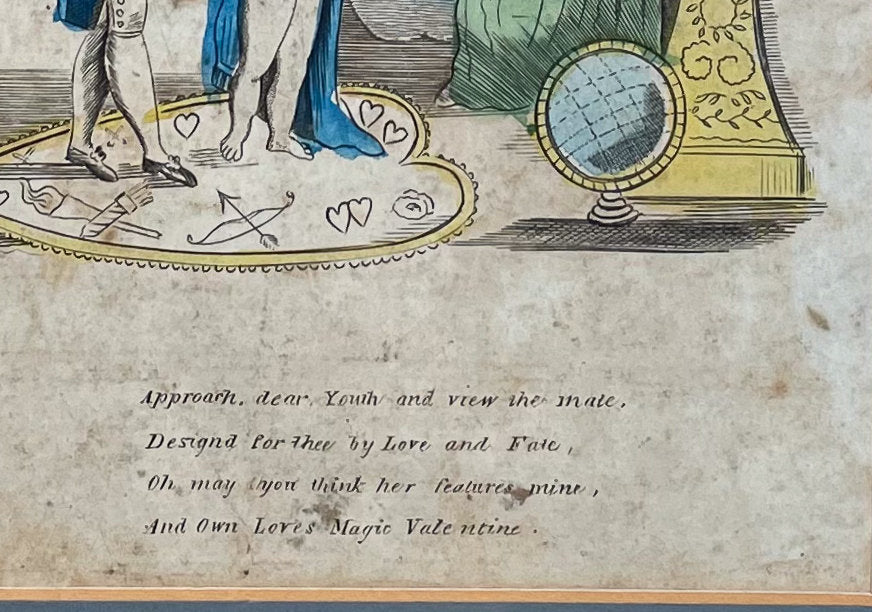 Approach, dear, Youth and view the mate,
Designd for Thee by Love and Fate,
Oh may you think her features mine,
And Own Loves Magic Valentine.